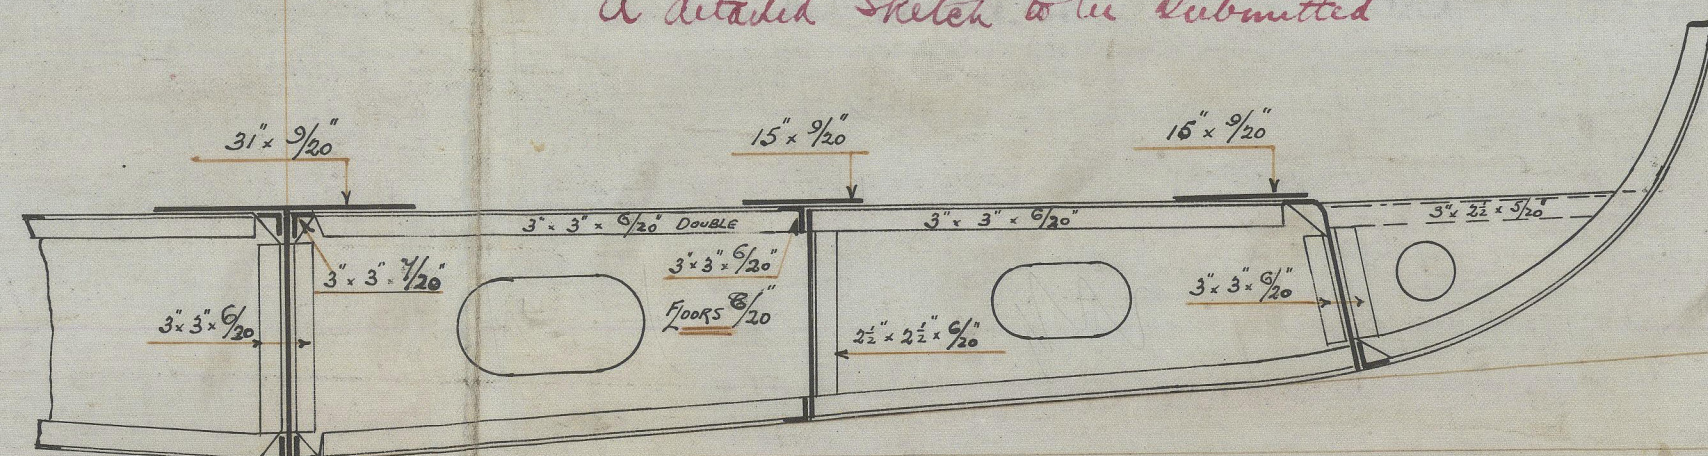 A detailed Sketch to be Submitted
31" × 9/20"
15" × 9/20"
15" × 9/20"
3" × 3" × 6/20" DOUBLE
3" × 3" × 6/20"
3" × 2½ × 5/20"
3" × 3" × 6/20"
3" × 3" × 7/20"
3" × 3" × 6/20"
FLOORS 8/20"
3" × 3" × 6/20
2½" × 2½" × 6/20"